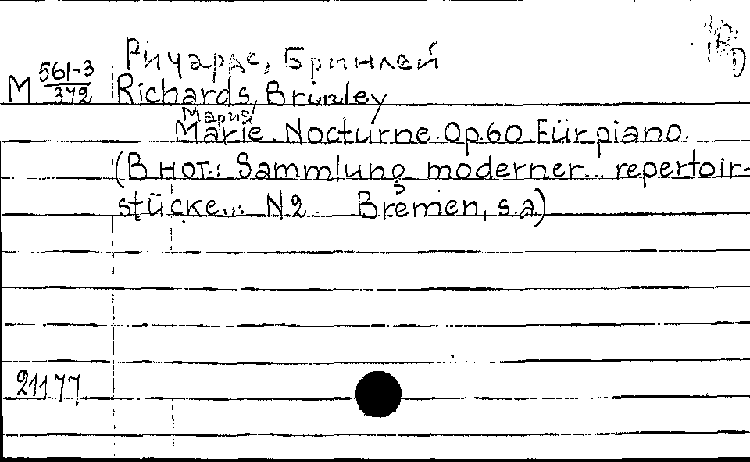 Ричардс, Бринлей
М 561-3/372 Richards, Brinley
Мария
Marie. Nocturne. Op.60. Für piano.
(В нот.: Sammlung moderner.. repertoir-
stücke... N2. Bremen, s.a.)
21177